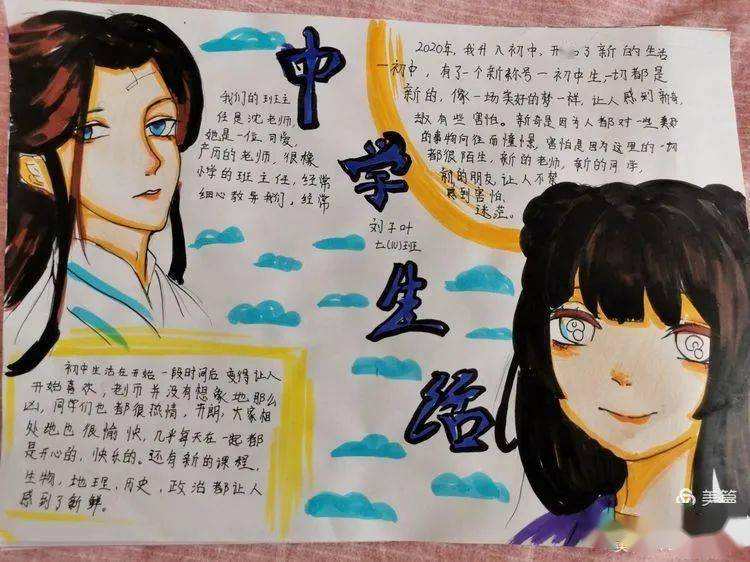 中学生活
2020年,我升入初中,开 了新的生活
一初中,有了一个新称号一初中生,一切都是
新的,像一场美好的梦一样,让人感到新奇,
故有些害怕。新奇是因为人都对一些美好
的事物向往而憧憬,害怕是因为这里的一切
都很陌生,新的老师,新的同学,
新的朋友,让人不禁
感到害怕、
迷茫。
我们的班主
任是沈老师,
她是一位可爱,
严厉的老师,很像
小学的班主任,经常
细心教导我们,经常
刘子叶
七(10)班
初中生活在开始一段时间后变得让人
开始喜欢,老师并没有想象地那么
凶,同学们也都很热情,开朗,大家相
处地也很愉快,几乎每天在一起都
是开心的,快乐的。还有新的课程,
生物,地理,历史,政治都让人
感到了新鲜。
美篇